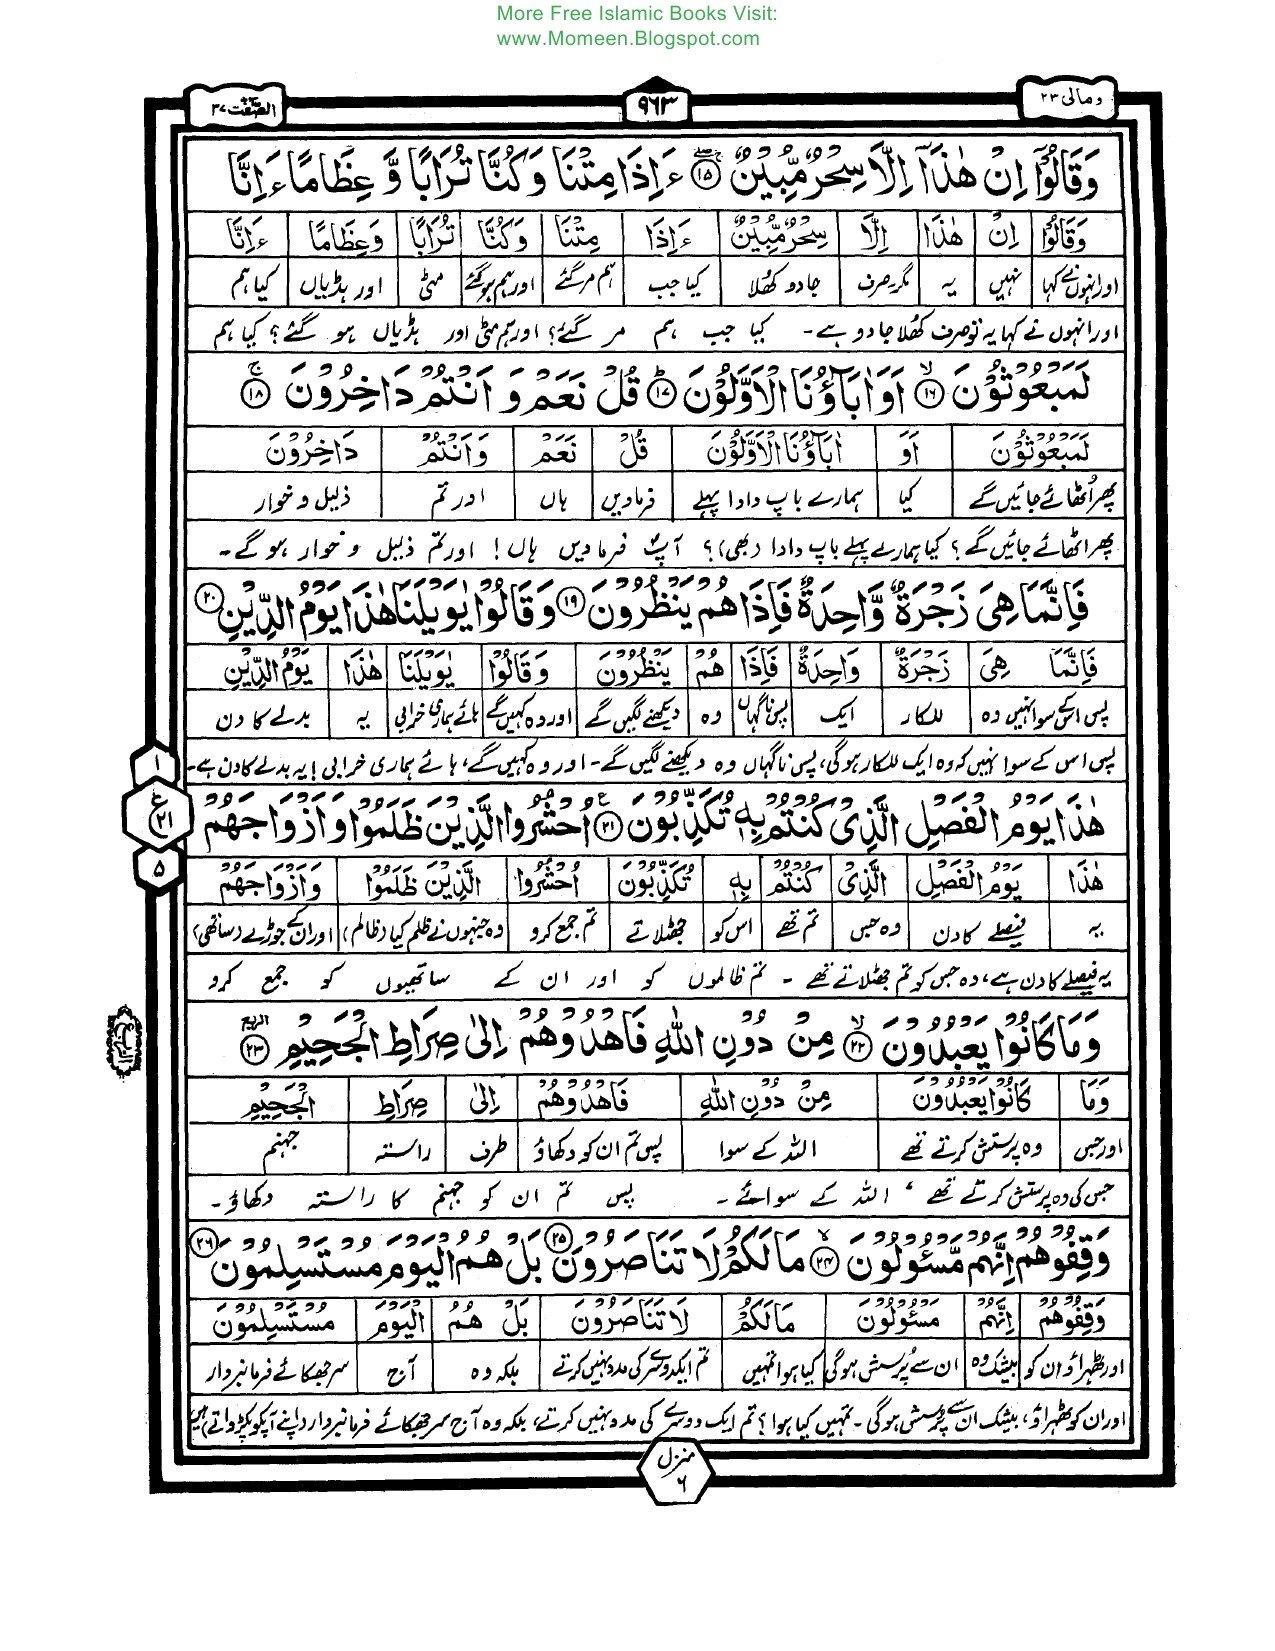 More Free Islamic Books Visit:
www.Momeen.Blogspot.com
ومالی ۲۳
۹۶۳
الصّٰفّٰت ۳۷
وَقَالُوْٓا اِنْ هٰذَآ اِلَّا سِحْرٌ مُّبِيْنٌ ۱۵ ءَاِذَا مِتْنَا وَكُنَّا تُرَابًا وَّ عِظَامًا ءَاِنَّا
وَقَالُوْٓا اِنْ هٰذَا اِلَّا سِحْرٌ مُّبِيْنٌ ءَاِذَا مِتْنَا وَكُنَّا تُرَابًا وَعِظَامًا ءَاِنَّا
اور انہوں نے کہا نہیں یہ مگر صرف جادو کھُلا کیا جب ہم مرگئے اور ہم ہوگئے مٹی اور ہڈیاں کیا ہم
اور انہوں نے کہا یہ تو صرف کھُلا جادو ہے۔ کیا جب ہم مر گئے؟ اور ہم مٹی اور ہڈیاں ہو گئے؟ کیا ہم
لَمَبْعُوْثُوْنَ ۱۶ اَوَاٰبَآؤُنَا الْاَوَّلُوْنَ ۱۷ قُلْ نَعَمْ وَ اَنْتُمْ دَاخِرُوْنَ ۱۸
لَمَبْعُوْثُوْنَ اَوَ اٰبَآؤُنَا الْاَوَّلُوْنَ قُلْ نَعَمْ وَاَنْتُمْ دَاخِرُوْنَ
پھر اُٹھائے جائیں گے کیا ہمارے باپ دادا پہلے فرمادیں ہاں اور تم ذلیل و خوار
پھر اٹھائے جائیں گے؟ کیا ہمارے پہلے باپ دادا (بھی)؟ آپؐ فرمادیں ہاں! اور تم ذلیل و خوار ہو گے۔
فَاِنَّمَا هِيَ زَجْرَةٌ وَّاحِدَةٌ فَاِذَا هُمْ يَنْظُرُوْنَ ۱۹ وَقَالُوْا يٰوَيْلَنَا هٰذَا يَوْمُ الدِّيْنِ ۲۰
فَاِنَّمَا هِيَ زَجْرَةٌ وَاحِدَةٌ فَاِذَا هُمْ يَنْظُرُوْنَ وَقَالُوْا يٰوَيْلَنَا هٰذَا يَوْمُ الدِّيْنِ
پس اس کے سوا نہیں وہ للکار ایک پس ناگہاں وہ دیکھنے لگیں گے اور وہ کہیں گے ہائے ہماری خرابی یہ بدلے کا دن
پس اس کے سوا نہیں کہ وہ ایک للکار ہوگی، پس ناگہاں وہ دیکھنے لگیں گے۔ اور وہ کہیں گے، ہائے ہماری خرابی! یہ بدلے کا دن ہے۔
۱
ع
۲۱
۵
هٰذَا يَوْمُ الْفَصْلِ الَّذِيْ كُنْتُمْ بِهٖ تُكَذِّبُوْنَ ۲۱ اُحْشُرُوا الَّذِيْنَ ظَلَمُوْا وَاَزْوَاجَهُمْ
هٰذَا يَوْمُ الْفَصْلِ الَّذِيْ كُنْتُمْ بِهٖ تُكَذِّبُوْنَ اُحْشُرُوا الَّذِيْنَ ظَلَمُوْا وَاَزْوَاجَهُمْ
یہ فیصلے کا دن وہ جس تم تھے اس کو جھٹلاتے تم جمع کرو وہ جنہوں نے ظلم کیا (ظالم) اور ان کے جوڑے (ساتھی)
یہ فیصلے کا دن ہے، وہ جس کو تم جھٹلاتے تھے ۔ تم ظالموں کو اور ان کے ساتھیوں کو جمع کرو
وَمَا كَانُوْا يَعْبُدُوْنَ ۲۲ مِنْ دُوْنِ اللّٰهِ فَاهْدُوْهُمْ اِلٰى صِرَاطِ الْجَحِيْمِ ۲۳
الربع
وَمَا كَانُوْا يَعْبُدُوْنَ مِنْ دُوْنِ اللّٰهِ فَاهْدُوْهُمْ اِلٰى صِرَاطِ الْجَحِيْمِ
اور جس وہ پرستش کرتے تھے اللہ کے سوا پس تم ان کو دکھاؤ طرف راستہ جہنم
جس کی وہ پرستش کرتے تھے، اللہ کے سوائے۔ پس تم ان کو جہنم کا راستہ دکھاؤ۔
وَقِفُوْهُمْ اِنَّهُمْ مَّسْئُوْلُوْنَ ۲۴ مَا لَكُمْ لَا تَنَاصَرُوْنَ ۲۵ بَلْ هُمُ الْيَوْمَ مُسْتَسْلِمُوْنَ ۲۶
وَقِفُوْهُمْ اِنَّهُمْ مَسْئُوْلُوْنَ مَا لَكُمْ لَا تَنَاصَرُوْنَ بَلْ هُمُ الْيَوْمَ مُسْتَسْلِمُوْنَ
اور ٹھہراؤ ان کو بیشک وہ ان سے پُرسش ہوگی کیا ہوا تمہیں تم ایک دوسرے کی مدد نہیں کرتے بلکہ وہ آج سر جھکائے فرمانبردار
اور ان کو ٹھہراؤ، بیشک ان سے پُرسش ہوگی۔ تمہیں کیا ہوا؟ تم ایک دوسرے کی مدد نہیں کرتے، بلکہ وہ آج سر جھکائے فرمانبردار (اپنے آپ کو پکڑواتے) ہیں
منزل
۶